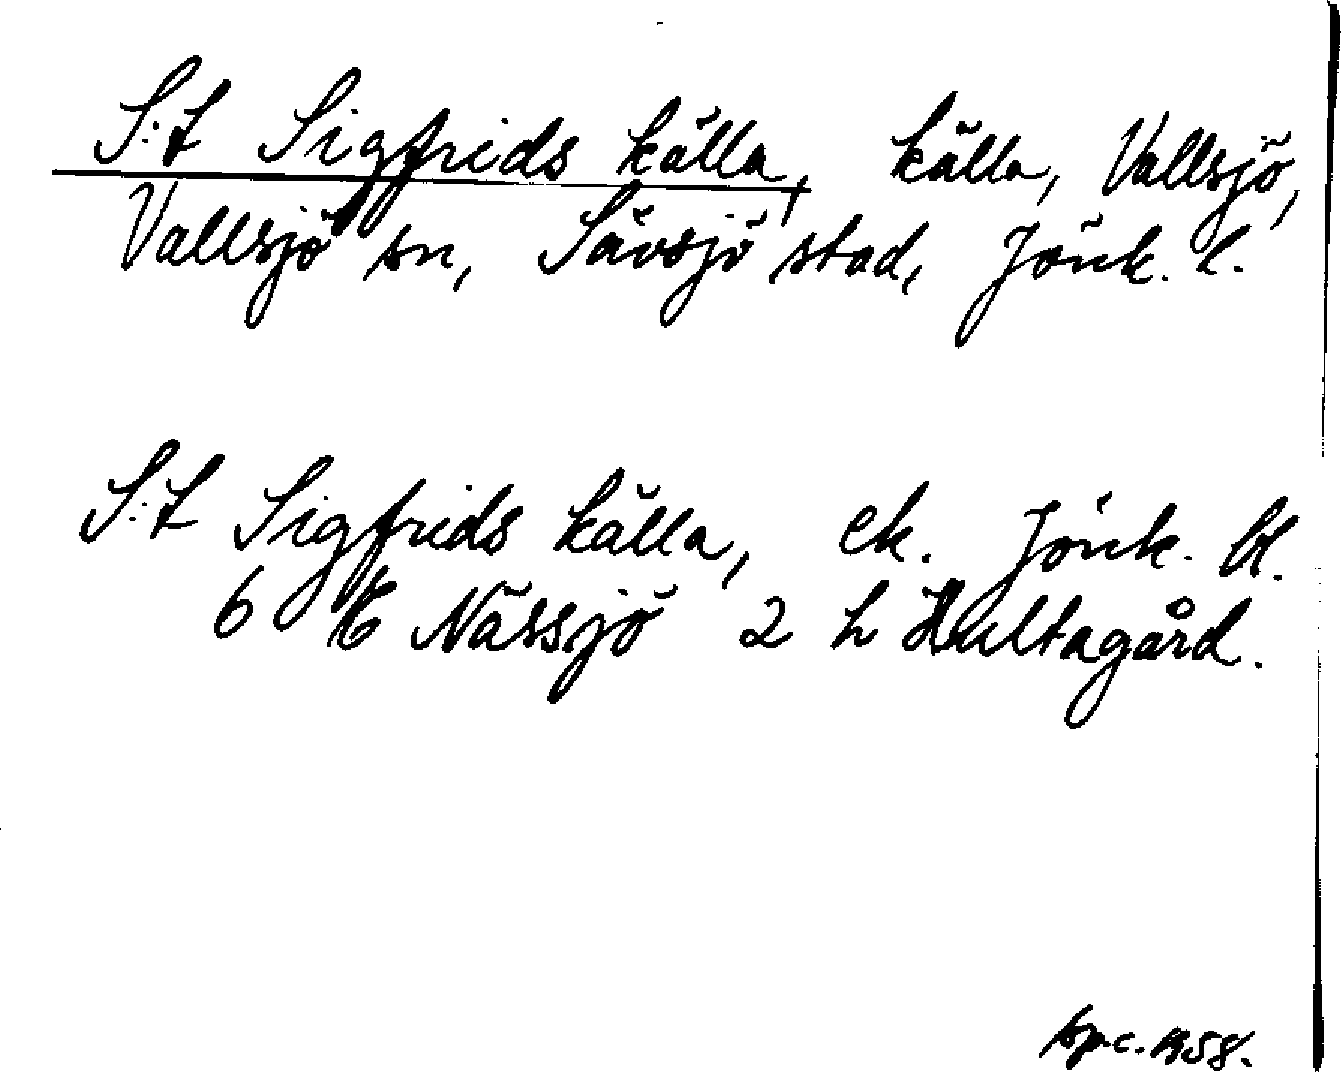 S:t Sigfrids källa, källa, Vallsjö,
Vallsjö sn, Sävsjö stad, Jönk. l.
S:t Sigfrids källa, ek. Jönk. bl.
6 E Nässjö 2 h Hultagård.
sp.c. 1958.